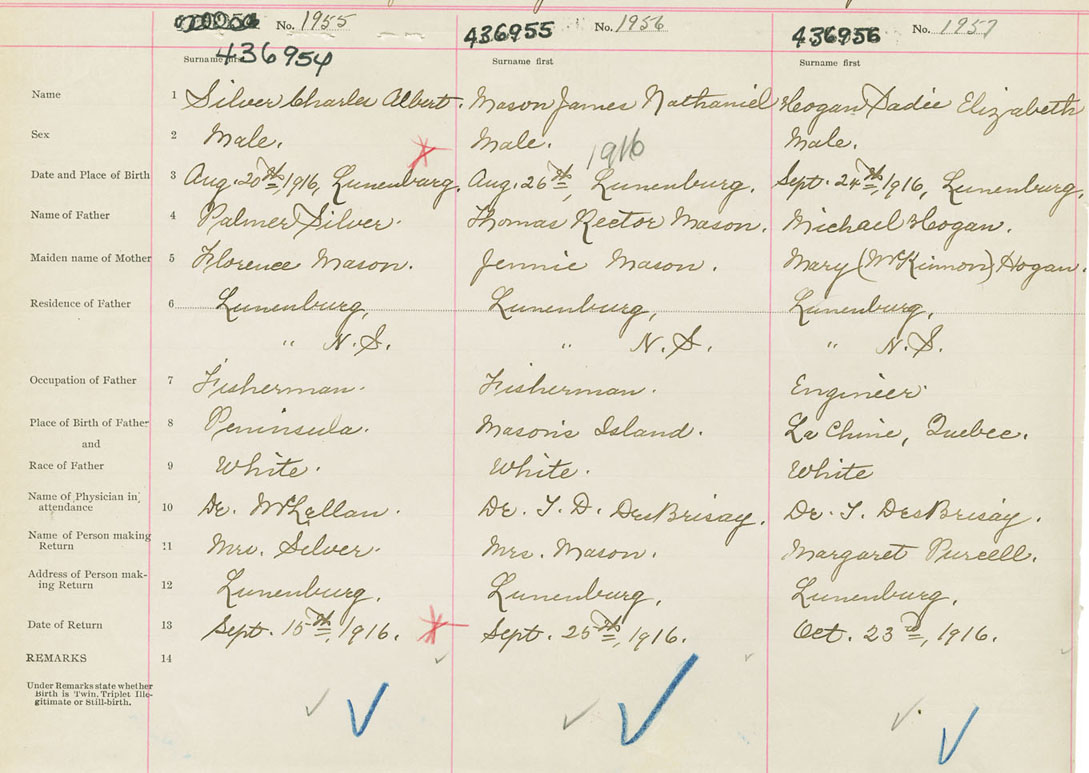 No. 1955 436955 No. 1956 436956 No. 1957
436954
Surname first Surname first Surname first
Name 1 Silver Charles Albert. Mason James Nathaniel Hogan Sadie Elizabeth
Sex 2 Male. Male. Male.
1916
Date and Place of Birth 3 Aug. 20th, 1916, Lunenburg. Aug. 26th, Lunenburg. Sept. 24th, 1916, Lunenburg.
Name of Father 4 Palmer Silver. Thomas Rector Mason. Michael Hogan.
Maiden name of Mother 5 Florence Mason. Jennie Mason. Mary (McKinnon) Hogan.
Residence of Father 6 Lunenburg, Lunenburg, Lunenburg,
" N.S. " N.S. " N.S.
Occupation of Father 7 Fisherman. Fisherman. Engineer.
Place of Birth of Father 8 Peninsula. Mason's Island. La Chine, Quebec.
and
Race of Father 9 White. White. White
Name of Physician in
attendance 10 Dr. McLellan. Dr. T. D. DesBrisay. Dr. T. DesBrisay.
Name of Person making
Return 11 Mrs. Silver. Mrs. Mason. Margaret Purcell.
Address of Person mak-
ing Return 12 Lunenburg. Lunenburg. Lunenburg.
Date of Return 13 Sept. 15th, 1916. Sept. 25th, 1916. Oct. 23rd, 1916.
REMARKS 14
Under Remarks state whether
Birth is Twin, Triplet Ille-
gitimate or Still-birth.